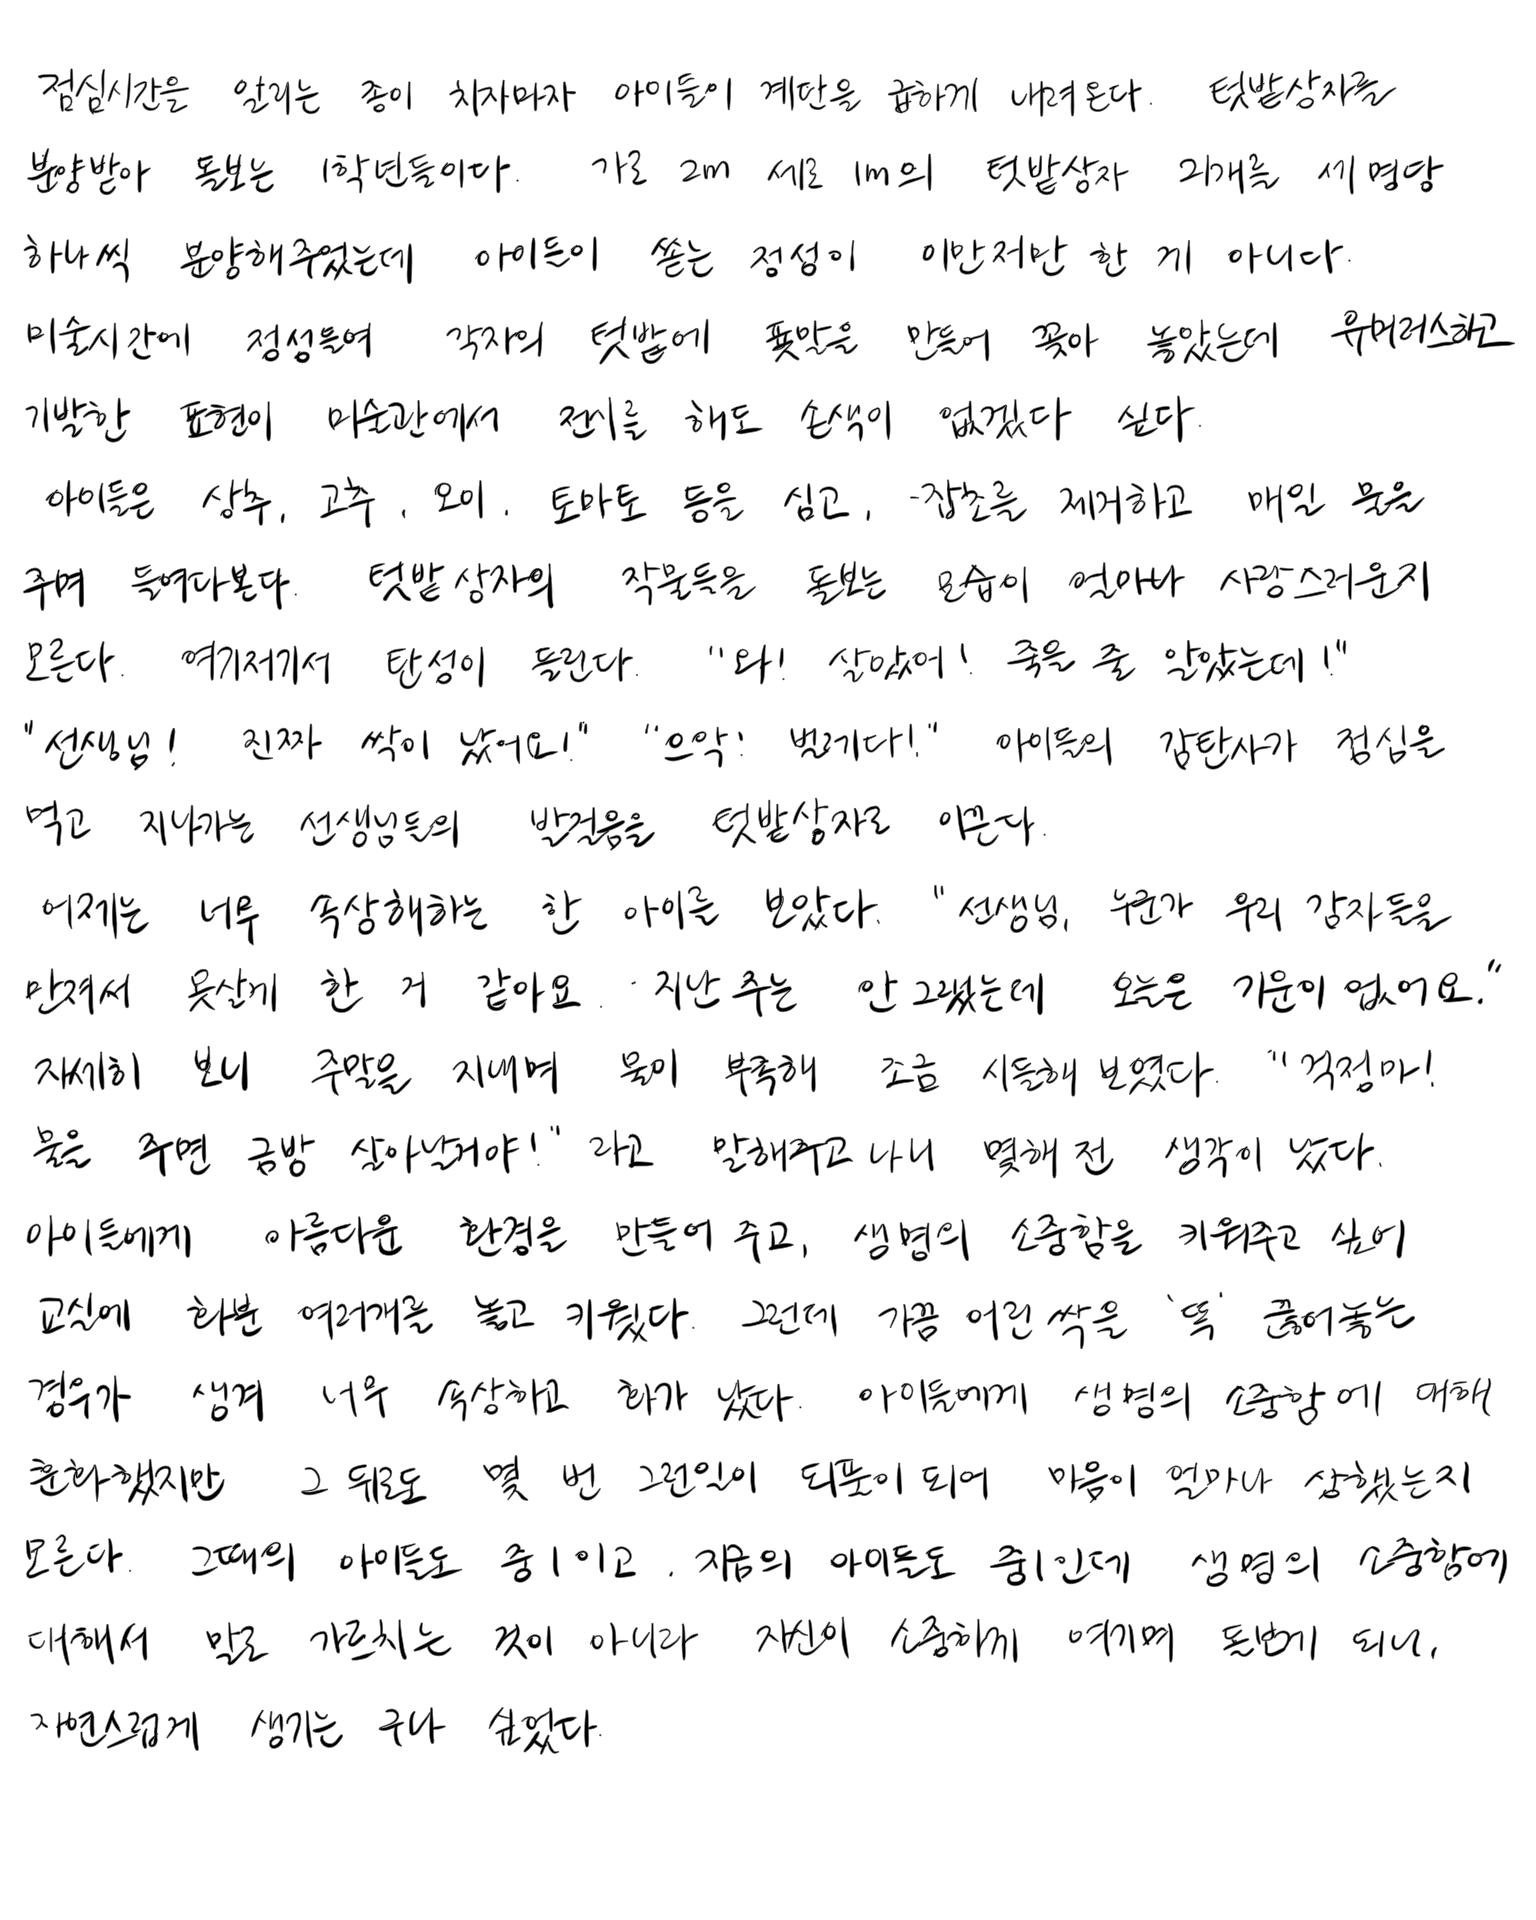 점심시간을 알리는 종이 치자마자 아이들이 계단을 급하게 내려온다. 텃밭상자를
분양받아 돌보는 1학년들이다. 가로 2m 세로 1m의 텃밭상자 21개를 세 명당
하나씩 분양해주었는데 아이들이 쏟는 정성이 이만저만 한 게 아니다.
미술시간에 정성들여 각자의 텃밭에 푯말을 만들어 꽂아 놓았는데 유머러스하고
기발한 표현이 미술관에서 전시를 해도 손색이 없겠다 싶다.
아이들은 상추, 고추, 오이, 토마토 등을 심고, 잡초를 제거하고 매일 물을
주며 들여다본다. 텃밭 상자의 작물들을 돌보는 모습이 얼마나 사랑스러운지
모른다. 여기저기서 탄성이 들린다. "와! 살았어! 죽을 줄 알았는데!"
"선생님! 진짜 싹이 났어요!" "으악! 벌레다!" 아이들의 감탄사가 점심을
먹고 지나가는 선생님들의 발걸음을 텃밭상자로 이끈다.
어제는 너무 속상해하는 한 아이를 보았다. "선생님, 누군가 우리 감자들을
만져서 못살게 한 거 같아요. 지난 주는 안 그랬는데 오늘은 기운이 없어요."
자세히 보니 주말을 지내며 물이 부족해 조금 시들해 보였다. "걱정마!
물을 주면 금방 살아날거야!" 라고 말해주고 나니 몇해 전 생각이 났다.
아이들에게 아름다운 환경을 만들어 주고, 생명의 소중함을 키워주고 싶어
교실에 화분 여러개를 놓고 키웠다. 그런데 가끔 어린 싹을 '똑' 끊어놓는
경우가 생겨 너무 속상하고 화가 났다. 아이들에게 생명의 소중함에 대해
훈화했지만 그 뒤로도 몇 번 그런일이 되풀이 되어 마음이 얼마나 상했는지
모른다. 그때의 아이들도 중1이고, 지금의 아이들도 중1인데 생명의 소중함에
대해서 말로 가르치는 것이 아니라 자신이 소중하게 여기며 돌보게 되니,
자연스럽게 생기는 구나 싶었다.